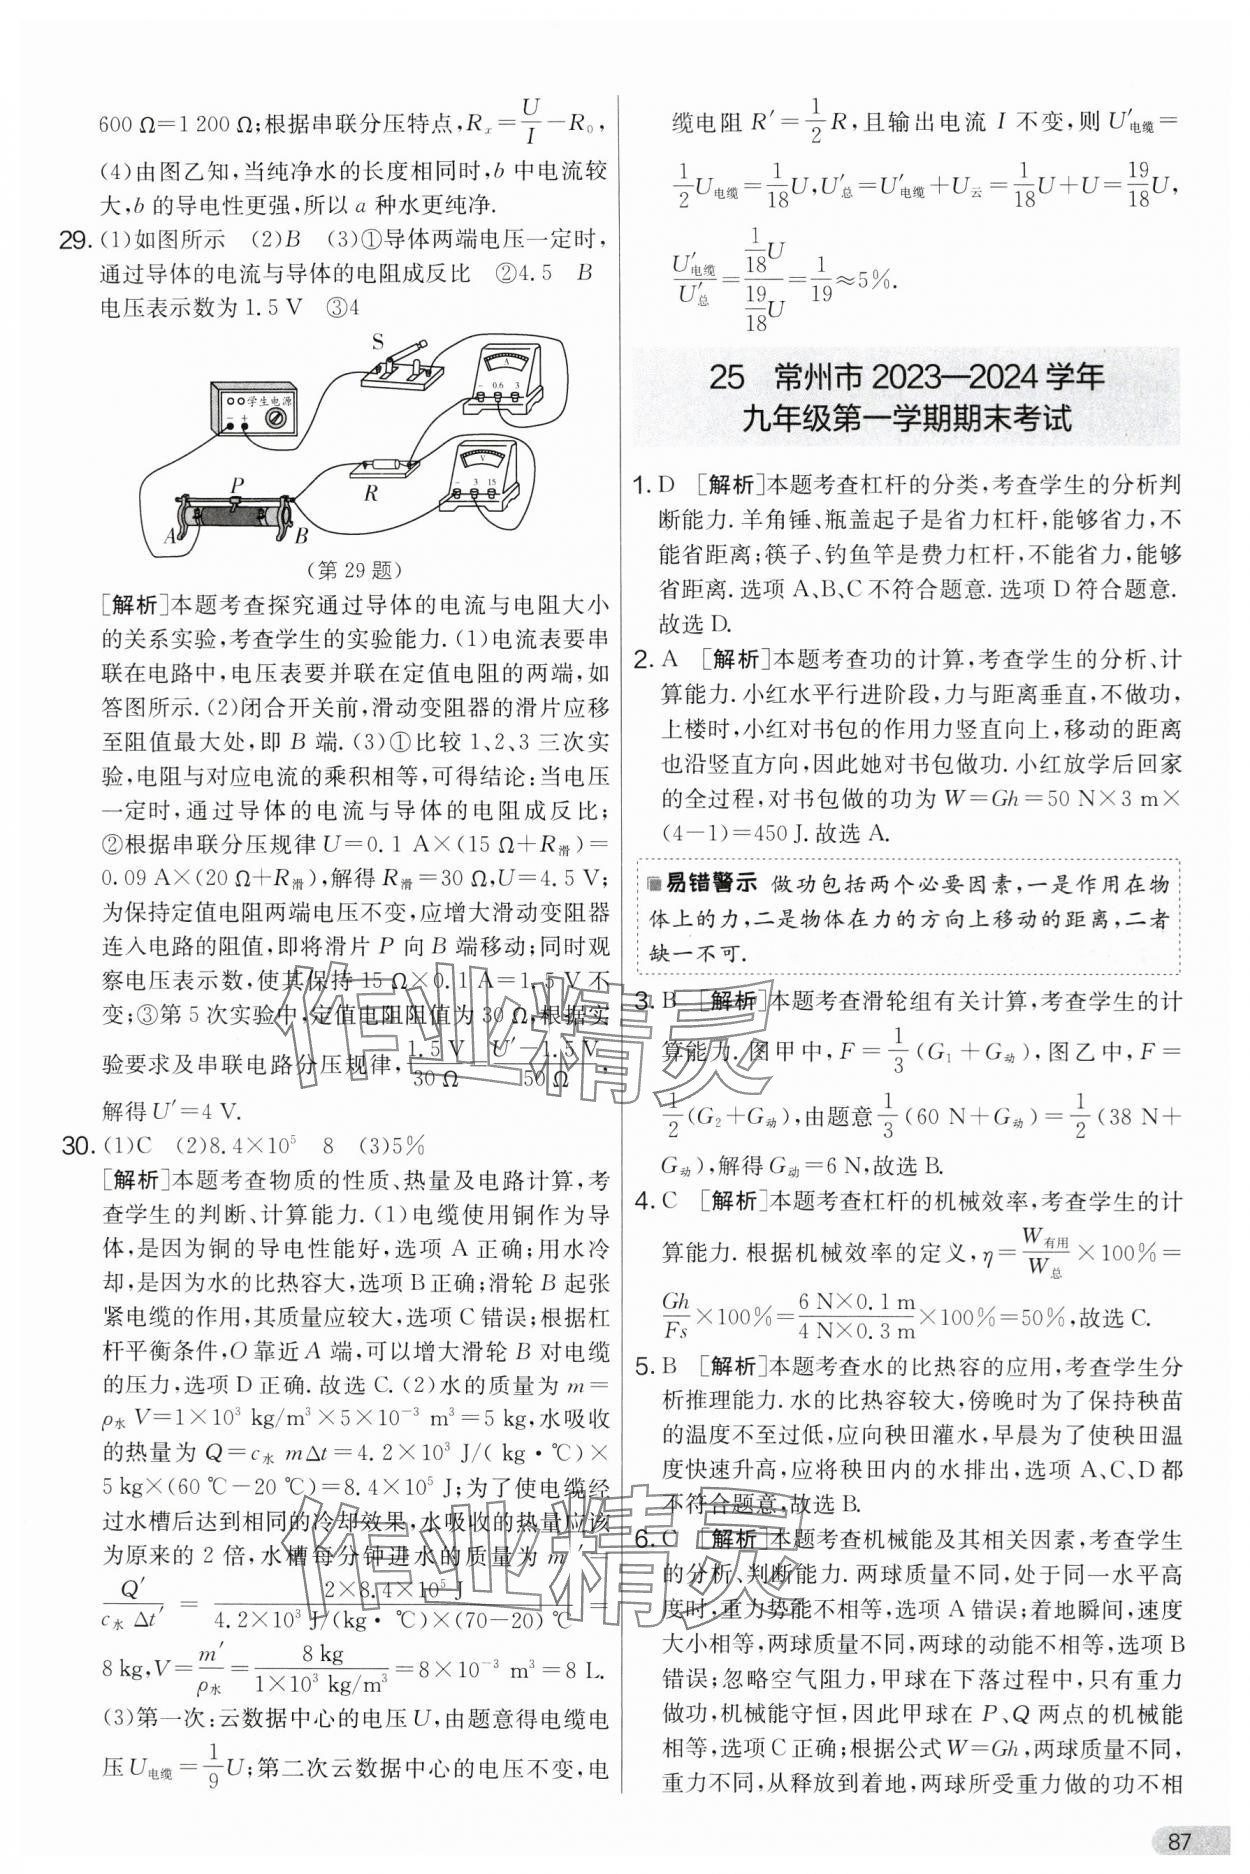 600 Ω=1 200 Ω;根据串联分压特点,Rₓ=U/I−R₀,
(4)由图乙知,当纯净水的长度相同时,b 中电流较
大,b 的导电性更强,所以 a 种水更纯净.
29. (1)如图所示 (2)B (3)①导体两端电压一定时,
通过导体的电流与导体的电阻成反比 ②4.5 B
电压表示数为 1.5 V ③4
S
学生电源
− +
A
− 0.6 3
V
− 3 15
P
R
A
B
(第 29 题)
[解析]本题考查探究通过导体的电流与电阻大小
的关系实验,考查学生的实验能力.(1)电流表要串
联在电路中,电压表要并联在定值电阻的两端,如
答图所示.(2)闭合开关前,滑动变阻器的滑片应移
至阻值最大处,即 B 端.(3)①比较 1、2、3 三次实
验,电阻与对应电流的乘积相等,可得结论:当电压
一定时,通过导体的电流与导体的电阻成反比;
②根据串联分压规律 U=0.1 A×(15 Ω+R滑)=
0.09 A×(20 Ω+R滑),解得 R滑=30 Ω,U=4.5 V;
为保持定值电阻两端电压不变,应增大滑动变阻器
连入电路的阻值,即将滑片 P 向 B 端移动;同时观
察电压表示数,使其保持 15 Ω×0.1 A=1.5 V 不
变;③第 5 次实验中,定值电阻阻值为 30 Ω,根据实
验要求及串联电路分压规律,1.5 V/30 Ω=(U′−1.5 V)/50 Ω,
解得 U′=4 V.
30. (1)C (2)8.4×10⁵ 8 (3)5%
[解析]本题考查物质的性质、热量及电路计算,考
查学生的判断、计算能力.(1)电缆使用铜作为导
体,是因为铜的导电性能好,选项 A 正确;用水冷
却,是因为水的比热容大,选项 B 正确;滑轮 B 起张
紧电缆的作用,其质量应较大,选项 C 错误;根据杠
杆平衡条件,O 靠近 A 端,可以增大滑轮 B 对电缆
的压力,选项 D 正确.故选 C.(2)水的质量为 m=
ρ水 V=1×10³ kg/m³×5×10⁻³ m³=5 kg,水吸收
的热量为 Q=c水 mΔt=4.2×10³ J/(kg·℃)×
5 kg×(60 ℃−20 ℃)=8.4×10⁵ J;为了使电缆经
过水槽后达到相同的冷却效果,水吸收的热量应该
为原来的 2 倍,水槽每分钟进水的质量为 m′=
Q′/(c水 Δt′)=(2×8.4×10⁵ J)/(4.2×10³ J/(kg·℃)×(70−20) ℃)=
8 kg,V=m′/ρ水=8 kg/(1×10³ kg/m³)=8×10⁻³ m³=8 L.
(3)第一次:云数据中心的电压 U,由题意得电缆电
压 U电缆=1/9 U;第二次云数据中心的电压不变,电
缆电阻 R′=1/2 R,且输出电流 I 不变,则 U′电缆=
1/2 U电缆=1/18 U,U′总=U′电缆+U云=1/18 U+U=19/18 U,
U′电缆/U′总=(1/18 U)/(19/18 U)=1/19≈5%.
25 常州市 2023—2024 学年
九年级第一学期期末考试
1. D [解析]本题考查杠杆的分类,考查学生的分析判
断能力.羊角锤、瓶盖起子是省力杠杆,能够省力,不
能省距离;筷子、钓鱼竿是费力杠杆,不能省力,能够
省距离.选项 A、B、C 不符合题意.选项 D 符合题意.
故选 D.
2. A [解析]本题考查功的计算,考查学生的分析、计
算能力.小红水平行进阶段,力与距离垂直,不做功,
上楼时,小红对书包的作用力竖直向上,移动的距离
也沿竖直方向,因此她对书包做功.小红放学后回家
的全过程,对书包做的功为 W=Gh=50 N×3 m×
(4−1)=450 J.故选 A.
易错警示 做功包括两个必要因素,一是作用在物
体上的力,二是物体在力的方向上移动的距离,二者
缺一不可.
3. B [解析]本题考查滑轮组有关计算,考查学生的计
算能力.图甲中,F=1/3(G₁+G动),图乙中,F=
1/2(G₂+G动),由题意1/3(60 N+G动)=1/2(38 N+
G动),解得 G动=6 N,故选 B.
4. C [解析]本题考查杠杆的机械效率,考查学生的计
算能力.根据机械效率的定义,η=W有用/W总×100%=
Gh/Fs×100%=(6 N×0.1 m)/(4 N×0.3 m)×100%=50%,故选 C.
5. B [解析]本题考查水的比热容的应用,考查学生分
析推理能力.水的比热容较大,傍晚时为了保持秧苗
的温度不至过低,应向秧田灌水,早晨为了使秧田温
度快速升高,应将秧田内的水排出,选项 A、C、D 都
不符合题意,故选 B.
6. C [解析]本题考查机械能及其相关因素,考查学生
的分析、判断能力.两球质量不同,处于同一水平高
度时,重力势能不相等,选项 A 错误;着地瞬间,速度
大小相等,两球质量不同,两球的动能不相等,选项 B
错误;忽略空气阻力,甲球在下落过程中,只有重力
做功,机械能守恒,因此甲球在 P、Q 两点的机械能
相等,选项 C 正确;根据公式 W=Gh,两球质量不同,
重力不同,从释放到着地,两球所受重力做的功不相
作业精灵
作业精灵
87